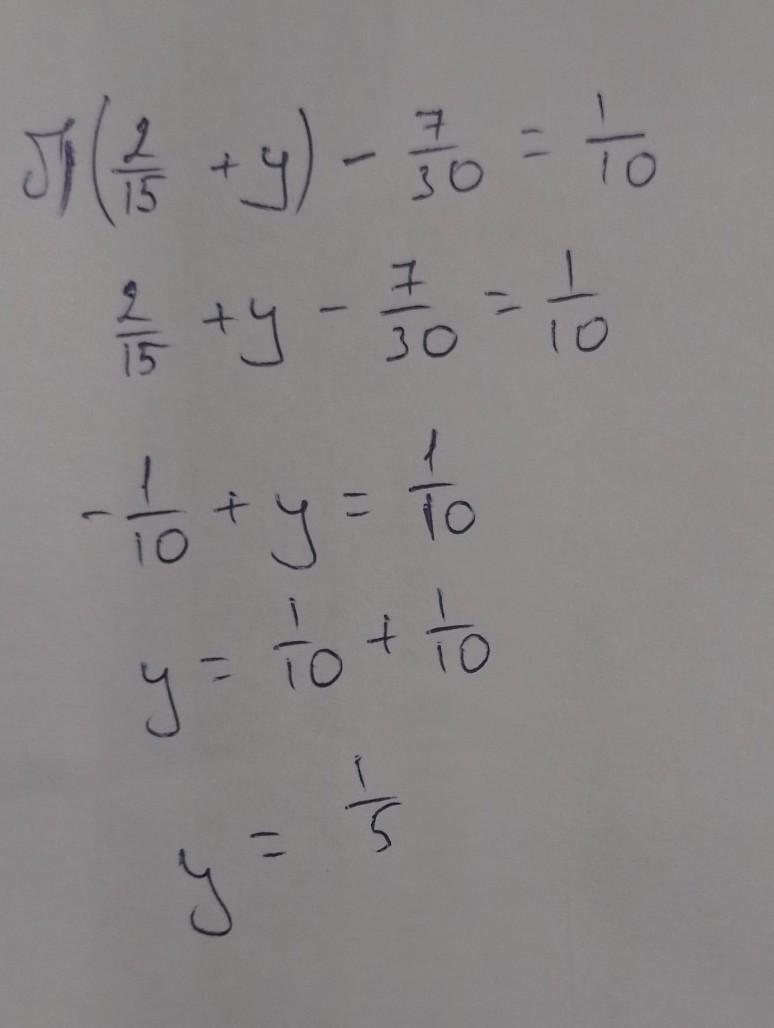 (2/15 + y) - 7/30 = 1/10
2/15 + y - 7/30 = 1/10
-1/10 + y = 1/10
y = 1/10 + 1/10
y = 1/5